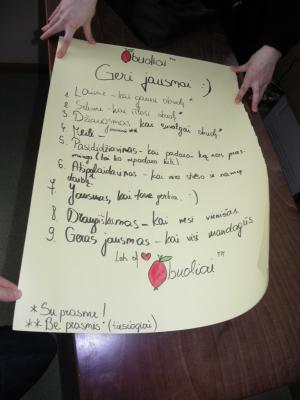 Obuoliai™
Geri jausmai :)
1. Laimė - kai gauni obuolį*
2. - kai obuolį*
3. Džiaugsmas kai suvalgai obuolį*
4. Meilė - jausmas**
5. Pasididžiavimas - kai padarai ką nors pras-
mingo (kai ko nepadaro kiti)
6. Atsipalaidavimas - kai nėra streso ir namų
darbų.
7. Jausmas, kai tave gerbia. :)
8. Draugiškumas - kai nesi vienišas
9. Geras jausmas - kai visi mandagūs
Lots of
Obuoliai™
*Su prasme!
**Be prasmės (tiesiogiai)